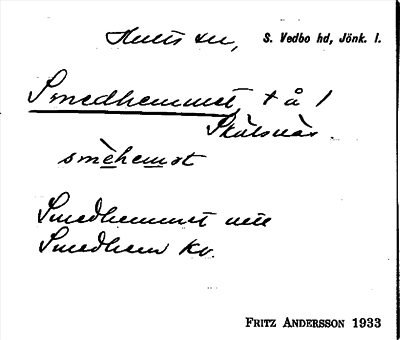 Hults sn, S. Vedbo hd, Jönk. l.
Smedhemmet, t å 1
Skälsnäs
smèhemǝt
Smedhemmet
Smedhem kv.
FRITZ ANDERSSON 1933